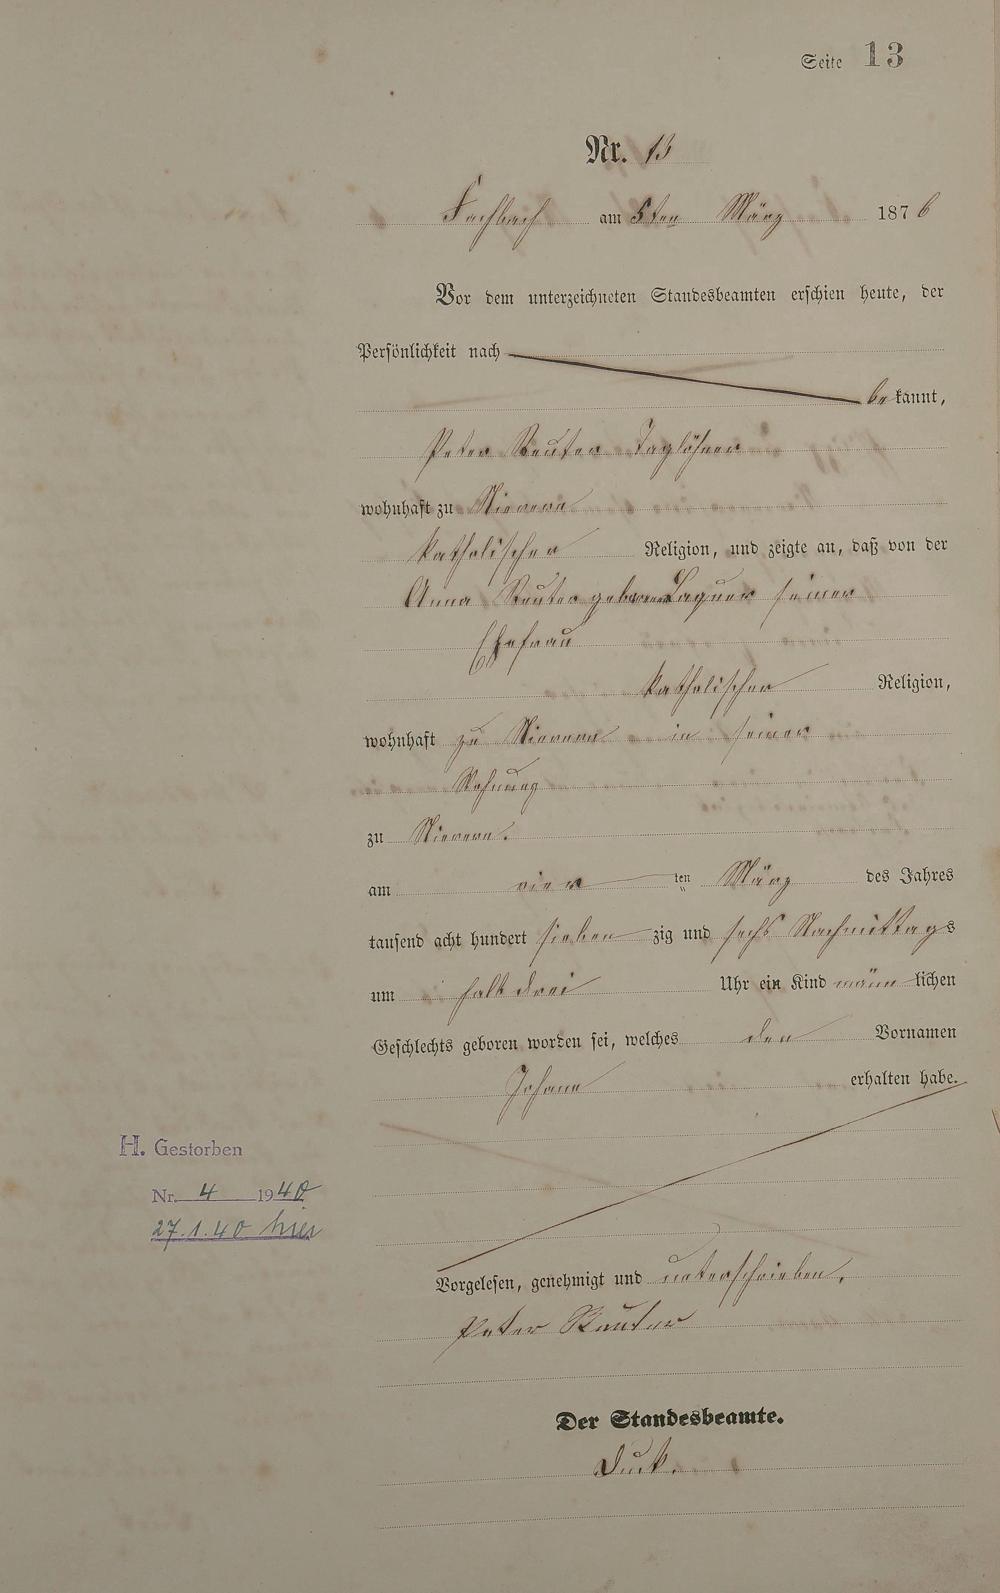 Seite 13
Nr. 13
Fachbach am 5ten März 1876
Vor dem unterzeichneten Standesbeamten erschien heute, der
Persönlichkeit nach
bekannt,
Peter Reuter Taglöhner
wohnhaft zu Nievern
katholischer Religion, und zeigte an, daß von der
Anna Reuter geborene Laquer seiner
Ehefrau
katholischer Religion,
wohnhaft zu Nievern in seiner
Wohnung
zu Nievern.
am vier ten März des Jahres
tausend acht hundert sieben zig und sechs Nachmittags
um halb drei Uhr ein Kind männlichen
Geschlechts geboren worden sei, welches den Vornamen
Johann erhalten habe.
H. Gestorben
Nr. 4 1940
27.1.40 hier
Vorgelesen, genehmigt und unterschrieben.
Peter Reuter
Der Standesbeamte.